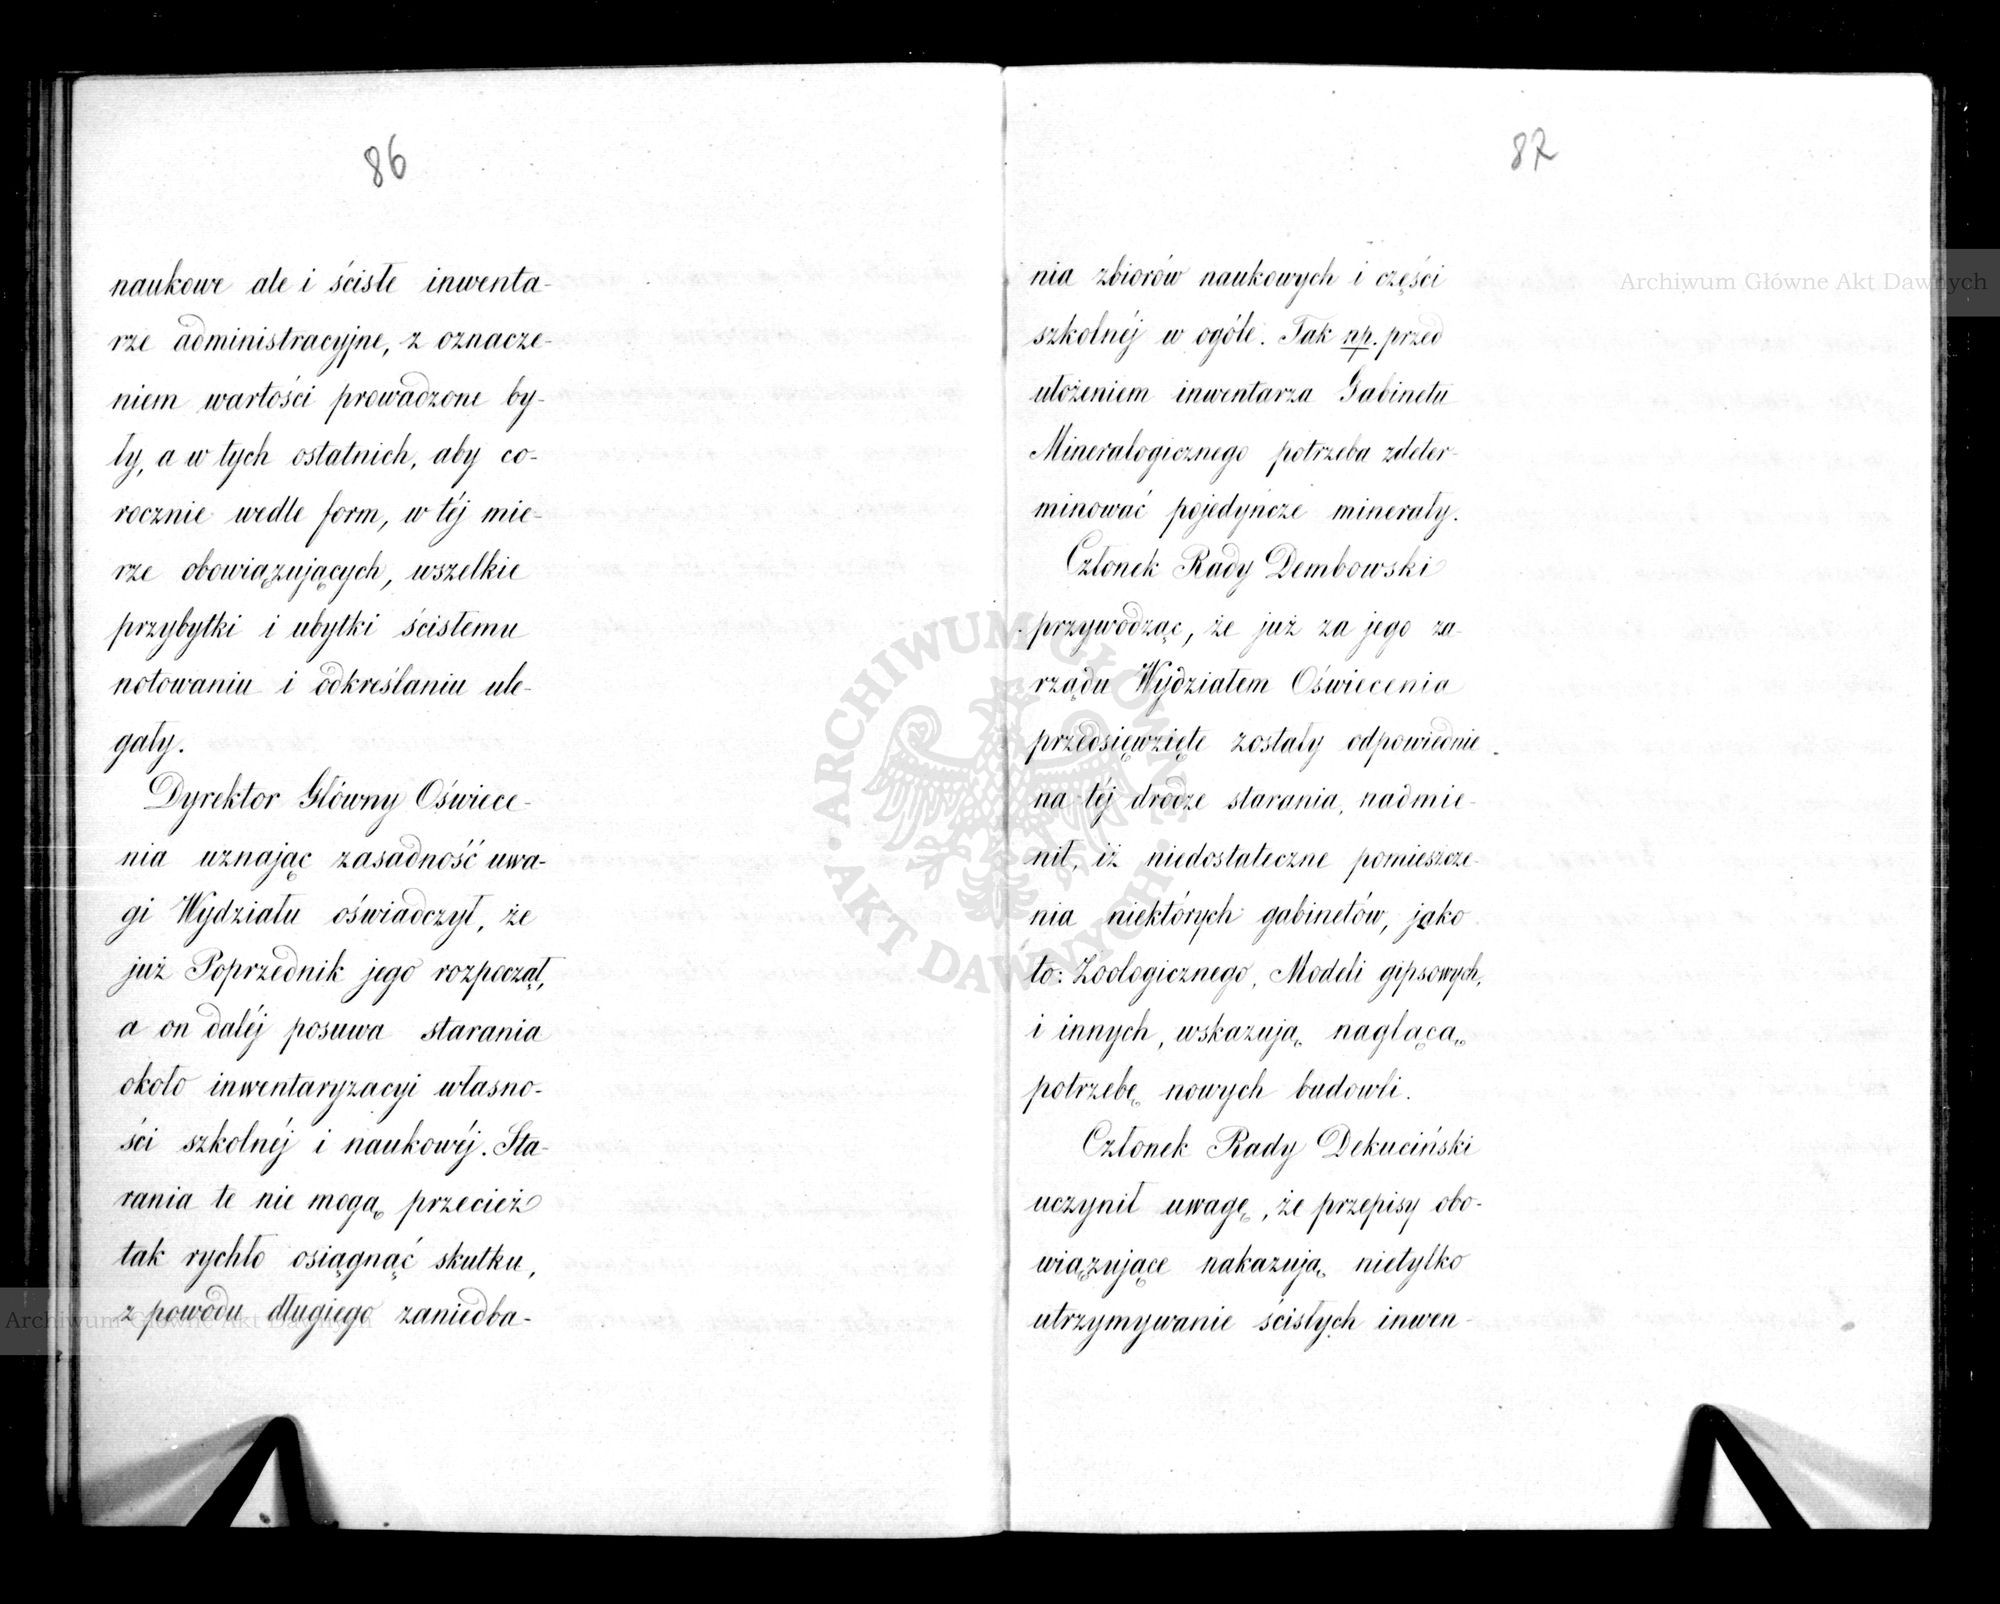 86
naukowe ale i ścisłe inwenta-
rze administracyjne, z oznacze-
niem wartości prowadzone by-
ły, a w tych ostatnich, aby co-
rocznie wedle form, w téj mie-
rze obowiązujących, wszelkie
przybytki i ubytki ścisłemu
notowaniu i odkreślaniu ule-
gały.
Dyrektor Główny Oświece-
nia uznając zasadność uwa-
gi Wydziału oświadczył, że
już Poprzednik jego rozpoczął,
a on daléj posuwa starania
około inwentaryzacyi własno-
ści szkolnéj i naukowéj. Sta-
rania te nie mogą przecież
tak rychło osiągnąć skutku,
z powodu długiego zaniedba-
87
nia zbiorów naukowych i części
szkolnéj w ogóle. Tak np. przed
ułożeniem inwentarza Gabinetu
Mineralogicznego potrzeba zdeter-
minować pojedyńcze minerały.
Członek Rady Dembowski
przywodząc, że już za jego za-
rządu Wydziałem Oświecenia
przedsięwzięte zostały odpowiednie
na téj drodze starania, nadmie-
nił, iż niedostateczne pomieszcze-
nia niektórych gabinetów, jako
to: Zoologicznego, Modeli gipsowych,
i innych, wskazują naglącą
potrzebę nowych budowli.
Członek Rady Dekuciński
uczynił uwagę, że przepisy obo-
wiązujące nakazują nietylko
utrzymywanie ścisłych inwen-
Archiwum Główne Akt Dawnych
Archiwum Główne Akt Dawnych
ARCHIWUM GŁÓWNE · AKT DAWNYCH ·